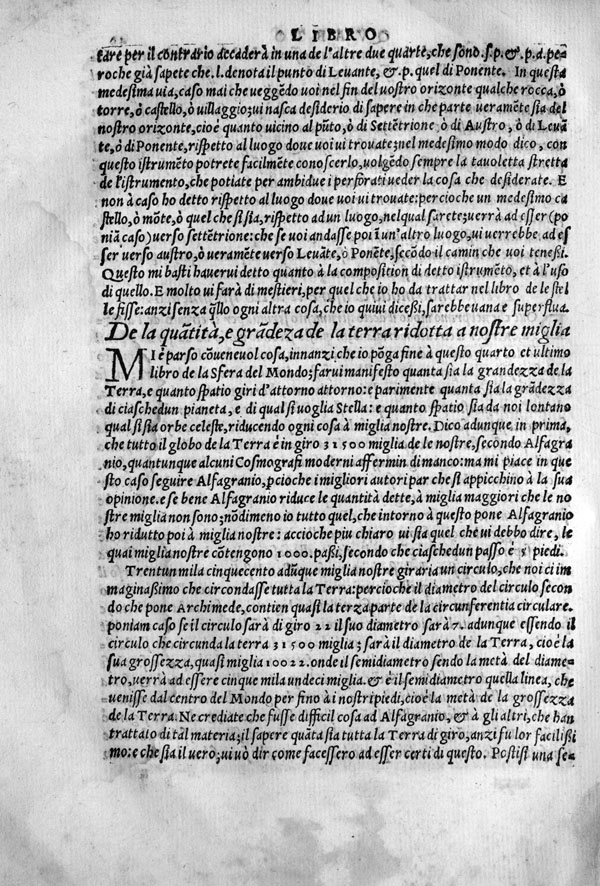 LIBRO
tare per il contrario accaderà in una de l'altre due quarte, che sono .s.p.& .p.a. pe=
roche già sapete che .l. denota il punto di Leuante, & .p. quel di Ponente. In questa
medesima uia, caso mai che ueggẽdo uoi nel fin del uostro orizonte qualche rocca, ò
torre, ò castello, ò uillaggio; ui nasca desiderio di sapere in che parte ueramẽte sia del
nostro orizonte, cioè quanto uicino al pũto, ò di Settẽtrione ò di Austro, ò di Leuã
te, ò di Ponente, rispetto al luogo doue uoi ui trouate; nel medesimo modo dico, con
questo istrumẽto potrete facilmẽte conoscerlo, uolgẽdo sempre la tauoletta stretta
de l'istrumento, che potiate per ambidue i perforati ueder la cosa che desiderate. E
non à caso ho detto rispetto al luogo doue uoi ui trouate: percioche un medesimo ca
stello, ò mõte, ò quel che si sia, rispetto ad un luogo, nel qual sarete; uerrà ad esser (po
niã caso) uerso settẽtrione: che se uoi andasse poi ĩ un'altro luogo, ui uerrebbe ad es
ser uerso austro, ò ueramẽte uerso Leuãte, ò Ponẽte, secõdo il camin che uoi tenessi.
Questo mi basti hauerui detto quanto à la composition di detto istrumẽto, et à l'uso
di quello. E molto ui farà di mestieri, per quel che io ho da trattar nel libro de le stel
le fisse: anzi senza q̃llo ogni altra cosa, che io quiui dicessi, sarebbe uana e superflua.
De la quãtità, e grãdeza de la terra ridotta a nostre miglia
MI è parso cõueneuol cosa, innanzi, che io põga fine à questo quarto et ultimo
libro de la Sfera del Mondo; farui manifesto quanta sia la grandezza de la
Terra, e quanto spatio giri d'attorno attorno: e parimente quanta sia la grãdezza
di ciaschedun pianeta, e di qual si uoglia Stella: e quanto spatio sia da noi lontano
qual si sia orbe celeste, riducendo ogni cosa à miglia nostre. Dico adunque in prima,
che tutto il globo de la Terra è in giro 31500 miglia de le nostre, secondo Alfagra
nio, quantunque alcuni Cosmografi moderni affermin di manco: ma mi piace in que
sto caso seguire Alfagranio, ꝑcioche i migliori autori par che si appicchino à la sua
opinione. e se bene Alfagranio riduce le quantità dette, à miglia maggiori che le no
stre miglia non sono; nõdimeno io tutto quel, che intorno à questo pone Alfagranio
ho ridutto poi à miglia nostre: accioche piu chiaro ui sia quel che ui debbo dire, le
quai miglia nostre cõtengono 1000. passi, secondo che ciaschedun passo è 5 piedi.
Trentun mila cinquecento adũque miglia nostre giraria un circulo, che noi ci im
maginassimo che circondasse tutta la Terra: percioche il diametro del circulo secon
do che pone Archimede, contien quasi la terza parte de la circunferentia circulare.
poniam caso se il circulo sarà di giro 22 il suo diametro sarà 7. adunque essendo il
circulo che circunda la terra 31500 miglia; sarà il diametro de la Terra, cioè la
sua grossezza, quasi miglia 10022. onde il semidiametro sendo la metà del diame=
tro, uerrà ad essere cinque mila undeci miglia. & è il semidiametro quella linea, che
uenisse dal centro del Mondo per fino à i nostri piedi, cioè la metà de la grossezza
de la Terra. Ne crediate che fusse difficil cosa ad Alfagranio, & à gli altri, che han
trattato di tal materia; il sapere quãta sia tutta la Terra di giro, anzi fu lor facilissi
mo: e che sia il uero; ui uò dir come facessero ad esser certi di questo. Postisi una se=